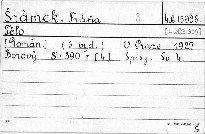 Šrámek, Fráňa S 4.C 15928.
Tělo
[Román.] (5. vyd.) V Praze 1927
Borový 8° 390 + [4] Spisy. Sv. 4.